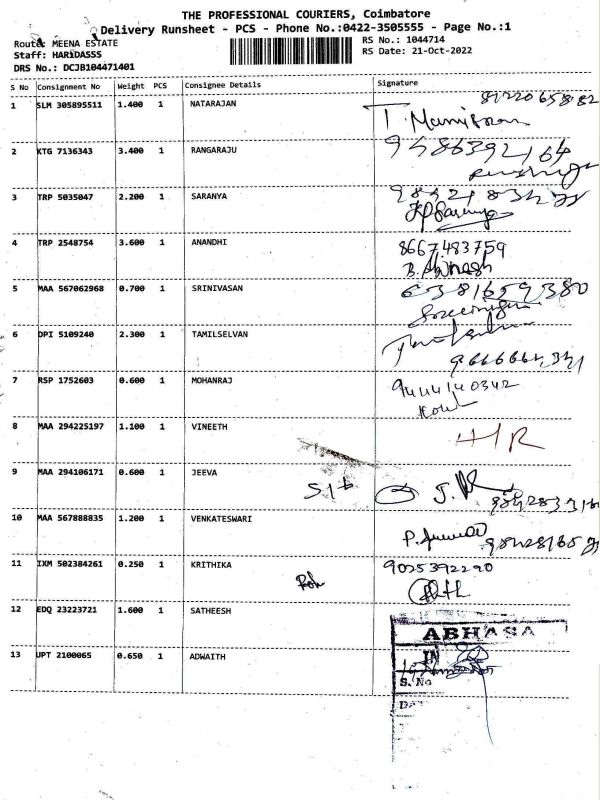 THE PROFESSIONAL COURIERS, Coimbatore
Delivery Runsheet - PCS - Phone No.:0422-3505555 - Page No.:1
Route: MEENA ESTATE
RS No.: 1044714
Staff: HARIDASSS
RS Date: 21-Oct-2022
DRS No.: DCJB104471401
S No Consignment No Weight PCS Consignee Details Signature
1 SLM 305895511 1.400 1 NATARAJAN
8122065882
T.
2 KTG 7136343 3.400 1 RANGARAJU
9486392164
3 TRP 5035047 2.200 1 SARANYA
4 TRP 2548754 3.600 1 ANANDHI
8667483759
B. Abinash
5 MAA 567062968 0.700 1 SRINIVASAN
6381659380
6 DPI 5109240 2.300 1 TAMILSELVAN
7 RSP 1752603 0.600 1 MOHANRAJ
9444140342
8 MAA 294225197 1.100 1 VINEETH
H/R
9 MAA 294106171 0.600 1 JEEVA
10 MAA 567888835 1.200 1 VENKATESWARI
11 IXM 502384261 0.250 1 KRITHIKA
9025392290
12 EDQ 23223721 1.600 1 SATHEESH
ABHASA
IN
13 UPT 2100065 0.650 1 ADWAITH
S. No